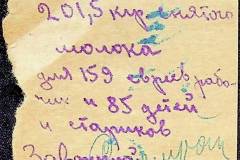 201,5 клр снятого
молока
для 159 евреев рабо-
чих и 85 детей
и стариков